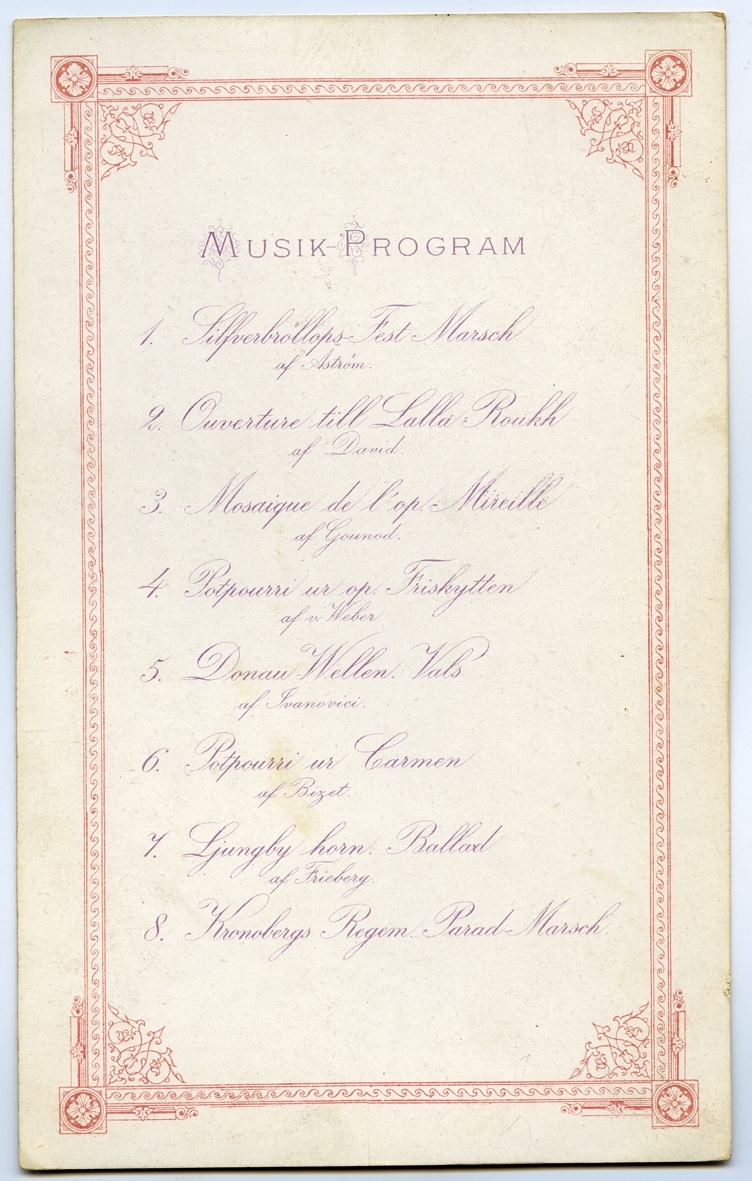 MUSIK-PROGRAM
1. Silfverbröllops-Fest-Marsch
af Åström.
2. Ouverture till Lalla-Roukh
af David.
3. Mosaique de l'op. Mireille
af Gounod.
4. Potpourri ur op. Friskytten
af v. Weber.
5. Donau-Wellen. Vals
af Ivanovici.
6. Potpourri ur Carmen
af Bizet.
7. Ljungby horn. Ballad
af Frieberg.
8. Kronobergs Regem. Parad-Marsch.